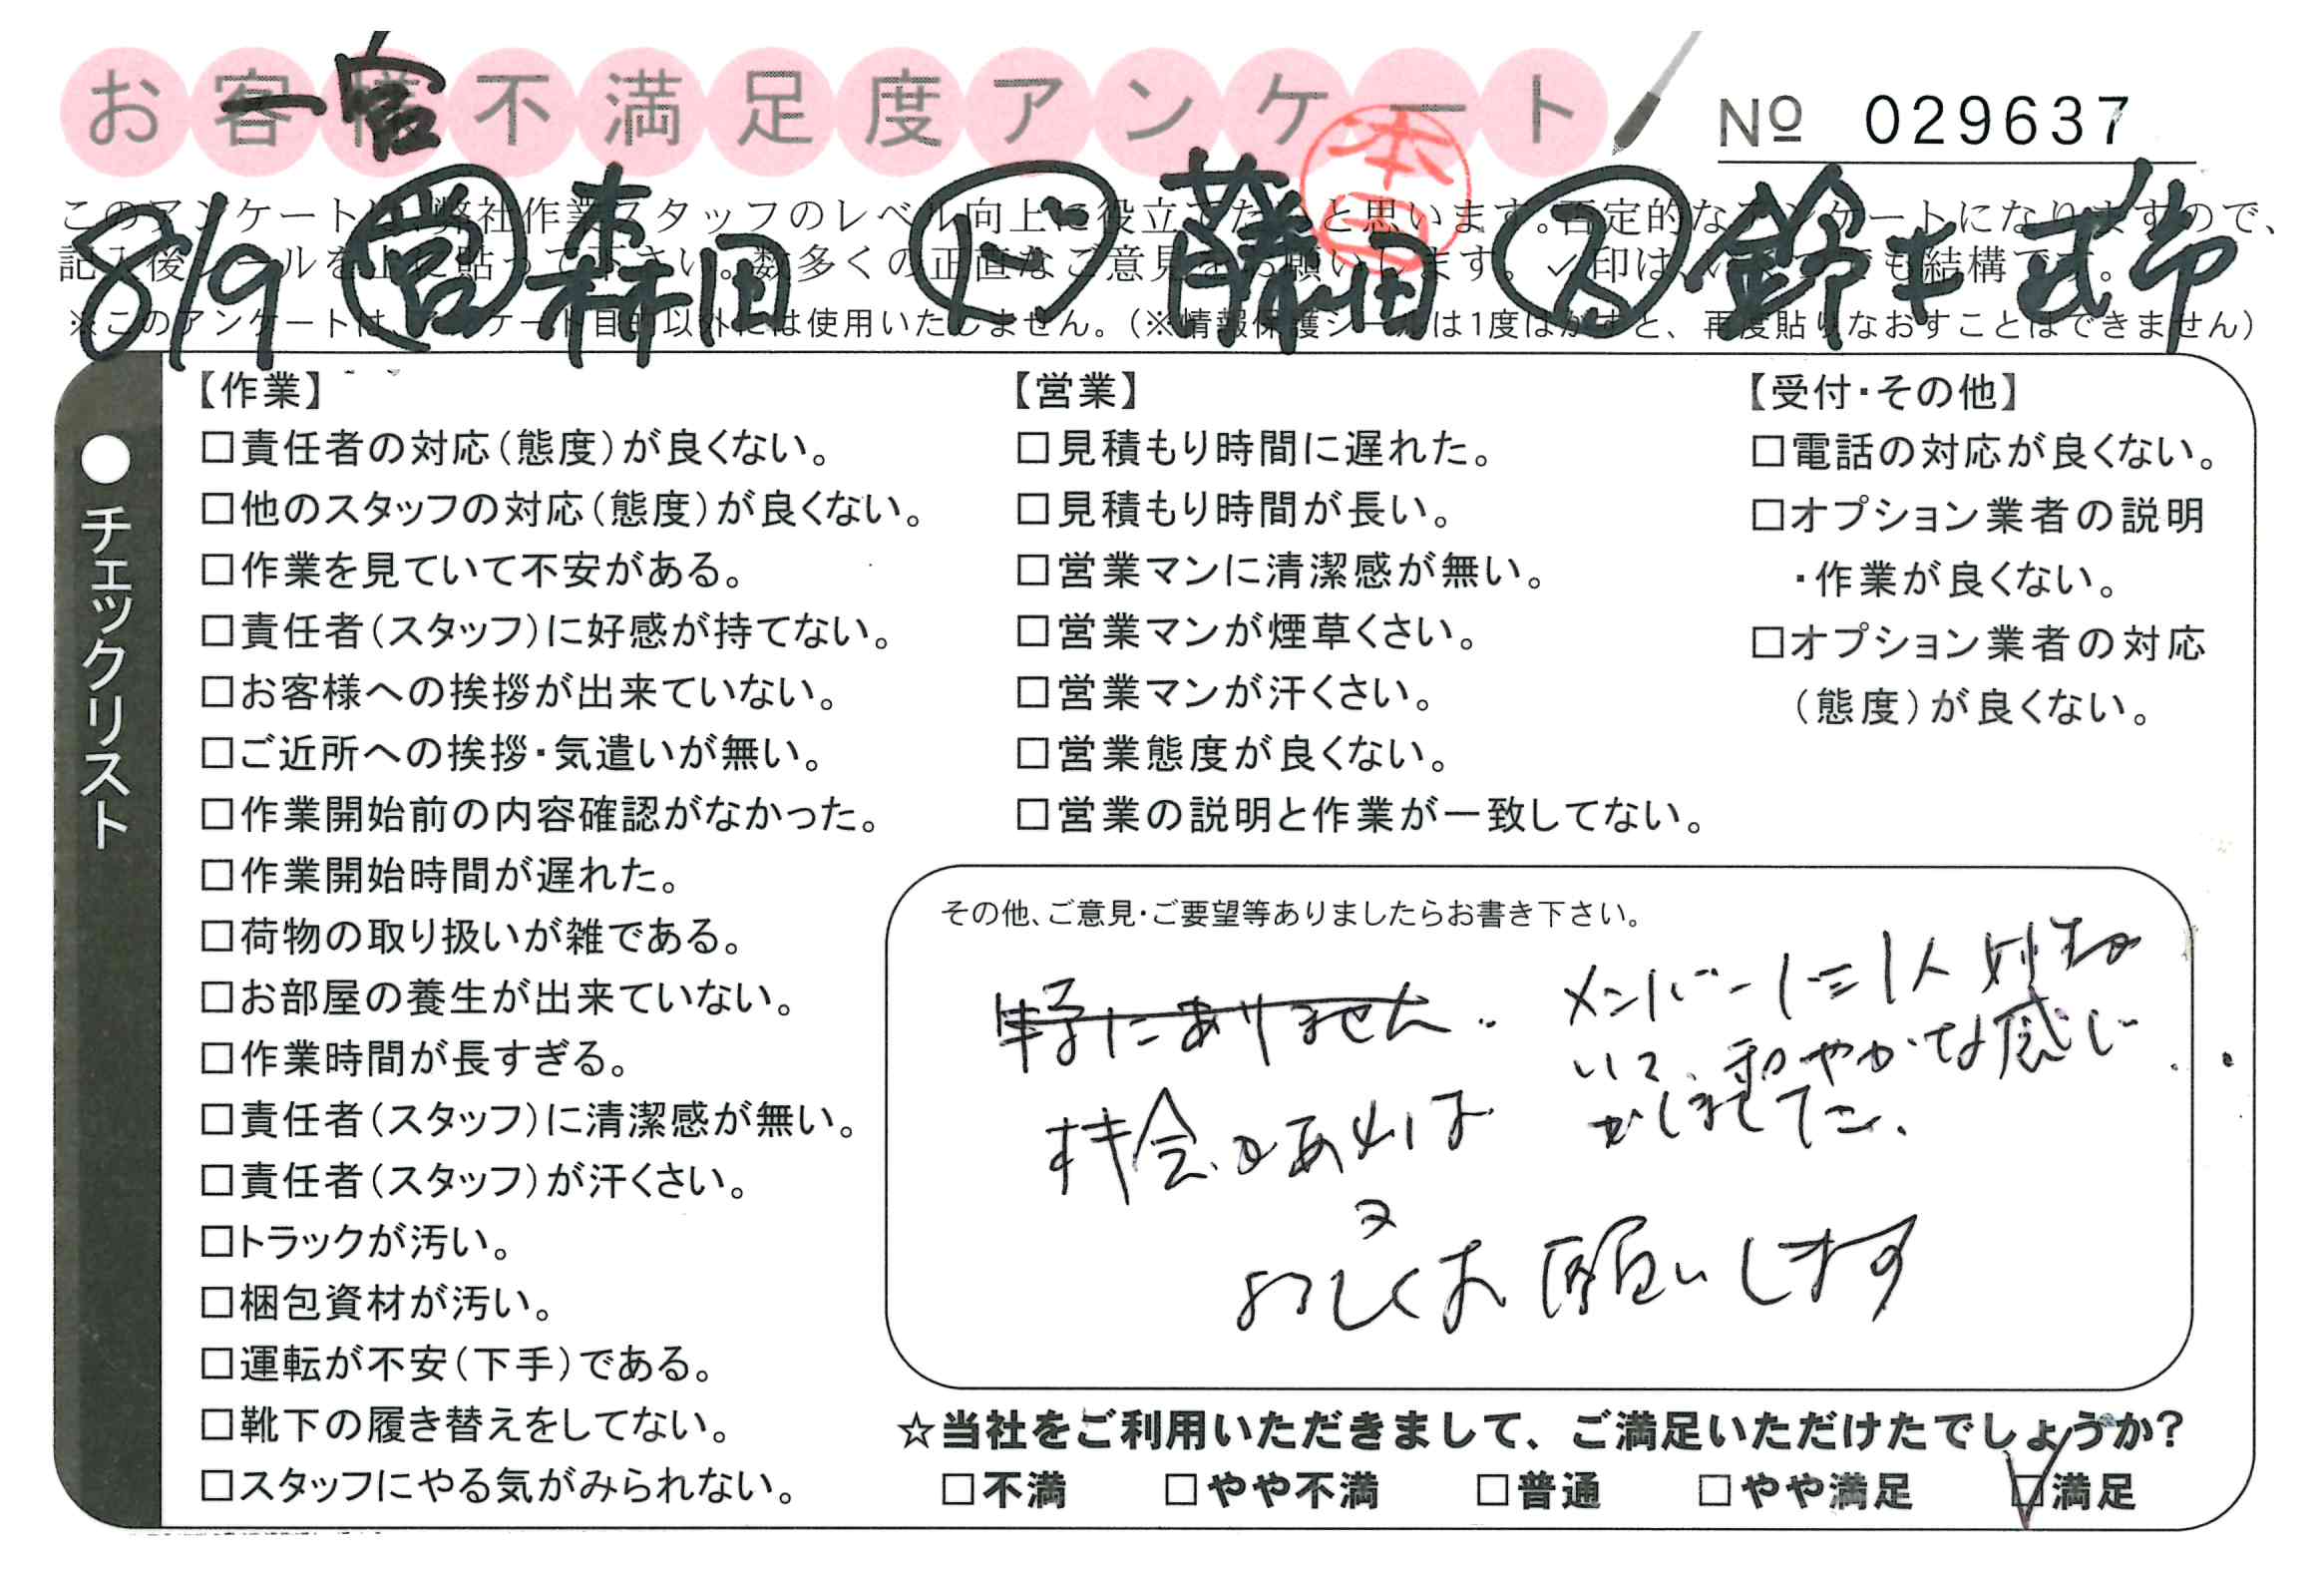 お客様不満足度アンケート
一宮
№ 029637
このアンケートは、弊社作業スタッフのレベル向上に役立てたいと思います。否定的なアンケートになりますので、
記入後シールを上に貼って下さい。数多くの正直なご意見をお願いします。✓印は、いくつでも結構です。
※このアンケートは、アンケート目的以外には使用いたしません。（※情報保護シールは1度はがすと、再度貼りなおすことはできません）
8/9 営 森田 ド 藤田 ス 鈴木
本日
●チェックリスト
【作業】
□責任者の対応（態度）が良くない。
□他のスタッフの対応（態度）が良くない。
□作業を見ていて不安がある。
□責任者（スタッフ）に好感が持てない。
□お客様への挨拶が出来ていない。
□ご近所への挨拶・気遣いが無い。
□作業開始前の内容確認がなかった。
□作業開始時間が遅れた。
□荷物の取り扱いが雑である。
□お部屋の養生が出来ていない。
□作業時間が長すぎる。
□責任者（スタッフ）に清潔感が無い。
□責任者（スタッフ）が汗くさい。
□トラックが汚い。
□梱包資材が汚い。
□運転が不安（下手）である。
□靴下の履き替えをしてない。
□スタッフにやる気がみられない。
【営業】
□見積もり時間に遅れた。
□見積もり時間が長い。
□営業マンに清潔感が無い。
□営業マンが煙草くさい。
□営業マンが汗くさい。
□営業態度が良くない。
□営業の説明と作業が一致してない。
【受付・その他】
□電話の対応が良くない。
□オプション業者の説明
・作業が良くない。
□オプション業者の対応
（態度）が良くない。
その他、ご意見・ご要望等ありましたらお書き下さい。
特にありません。
メンバーに1人
いて、和やかな感じ
がしました。
機会があれば
又
よろしくお願いします
☆当社をご利用いただきまして、ご満足いただけたでしょうか？
□不満 □やや不満 □普通 □やや満足 ☑満足